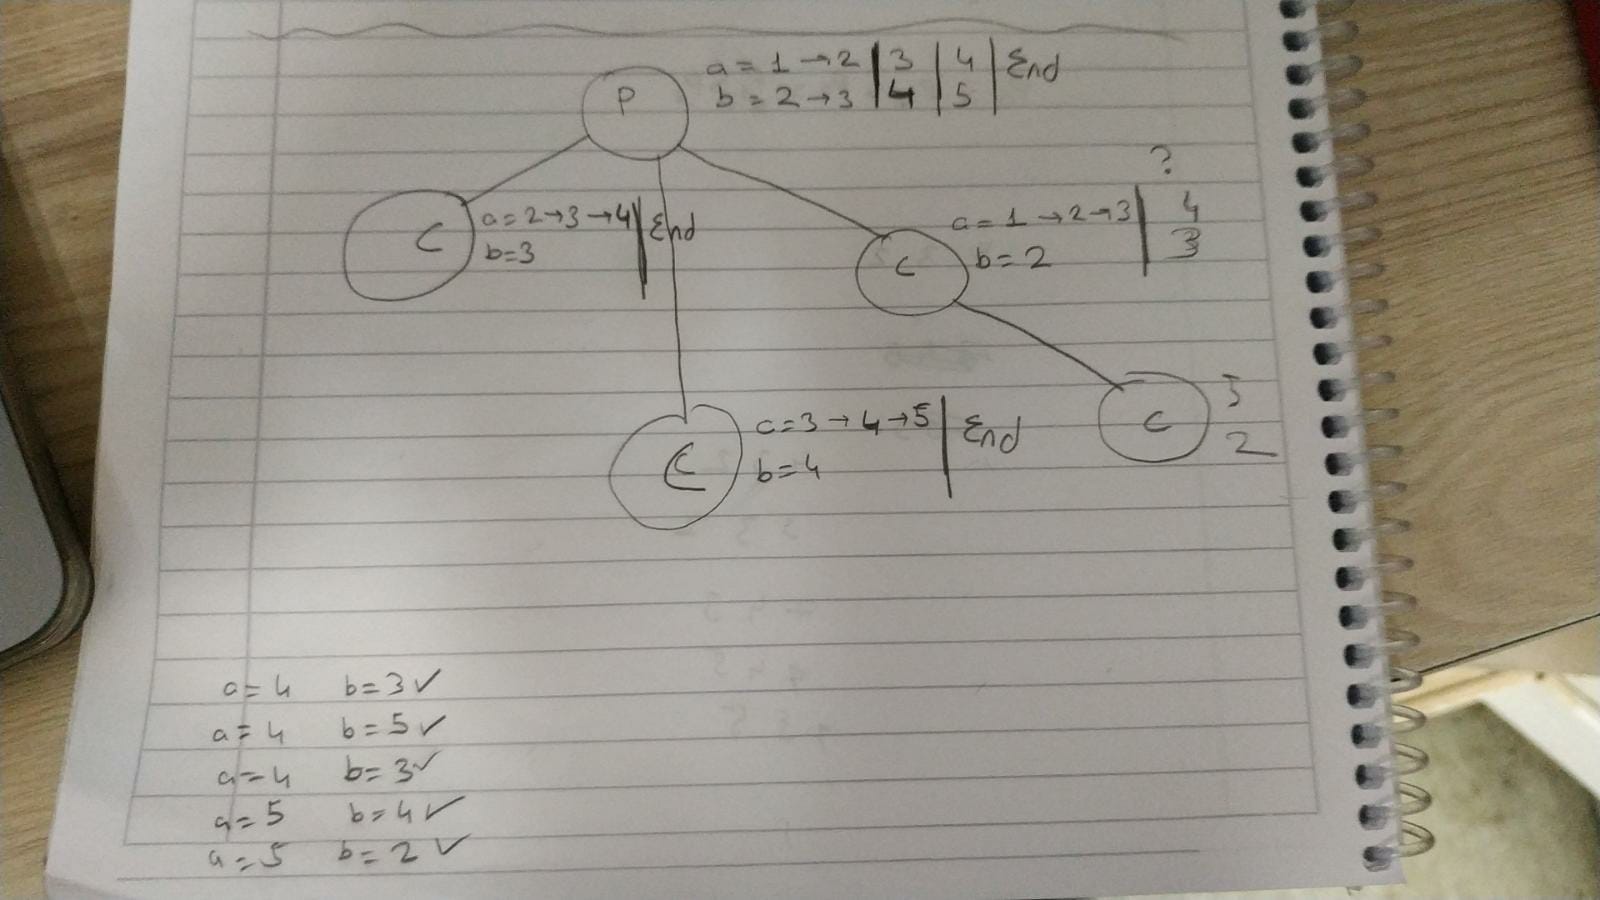 a = 1 → 2 | 3 | 4 | End
b = 2 → 3 | 4 | 5 |
P
?
a = 2 → 3 → 4 | End
b = 3
C
a = 1 → 2 → 3 | 4
b = 2 | 3
C
a = 3 → 4 → 5 | End
b = 4
C
5
C
2
a = 4 b = 3 ✓
a = 4 b = 5 ✓
a = 4 b = 3 ✓
a = 5 b = 4 ✓
a = 5 b = 2 ✓